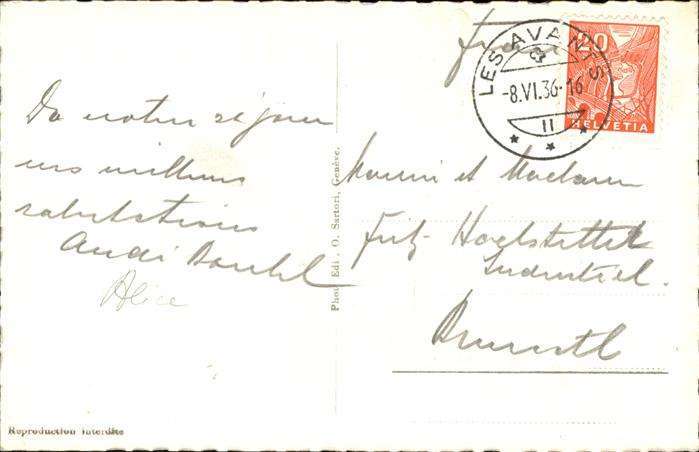 LES AVANTS
-8.VI.36-16
II
20
HELVETIA
De notre séjour
nos meilleurs
salutations
André
Alice
Photo Edi., O. Sartori, Genève.
et Madame
Fritz Hofstettel
Industriel.
Reproduction interdite